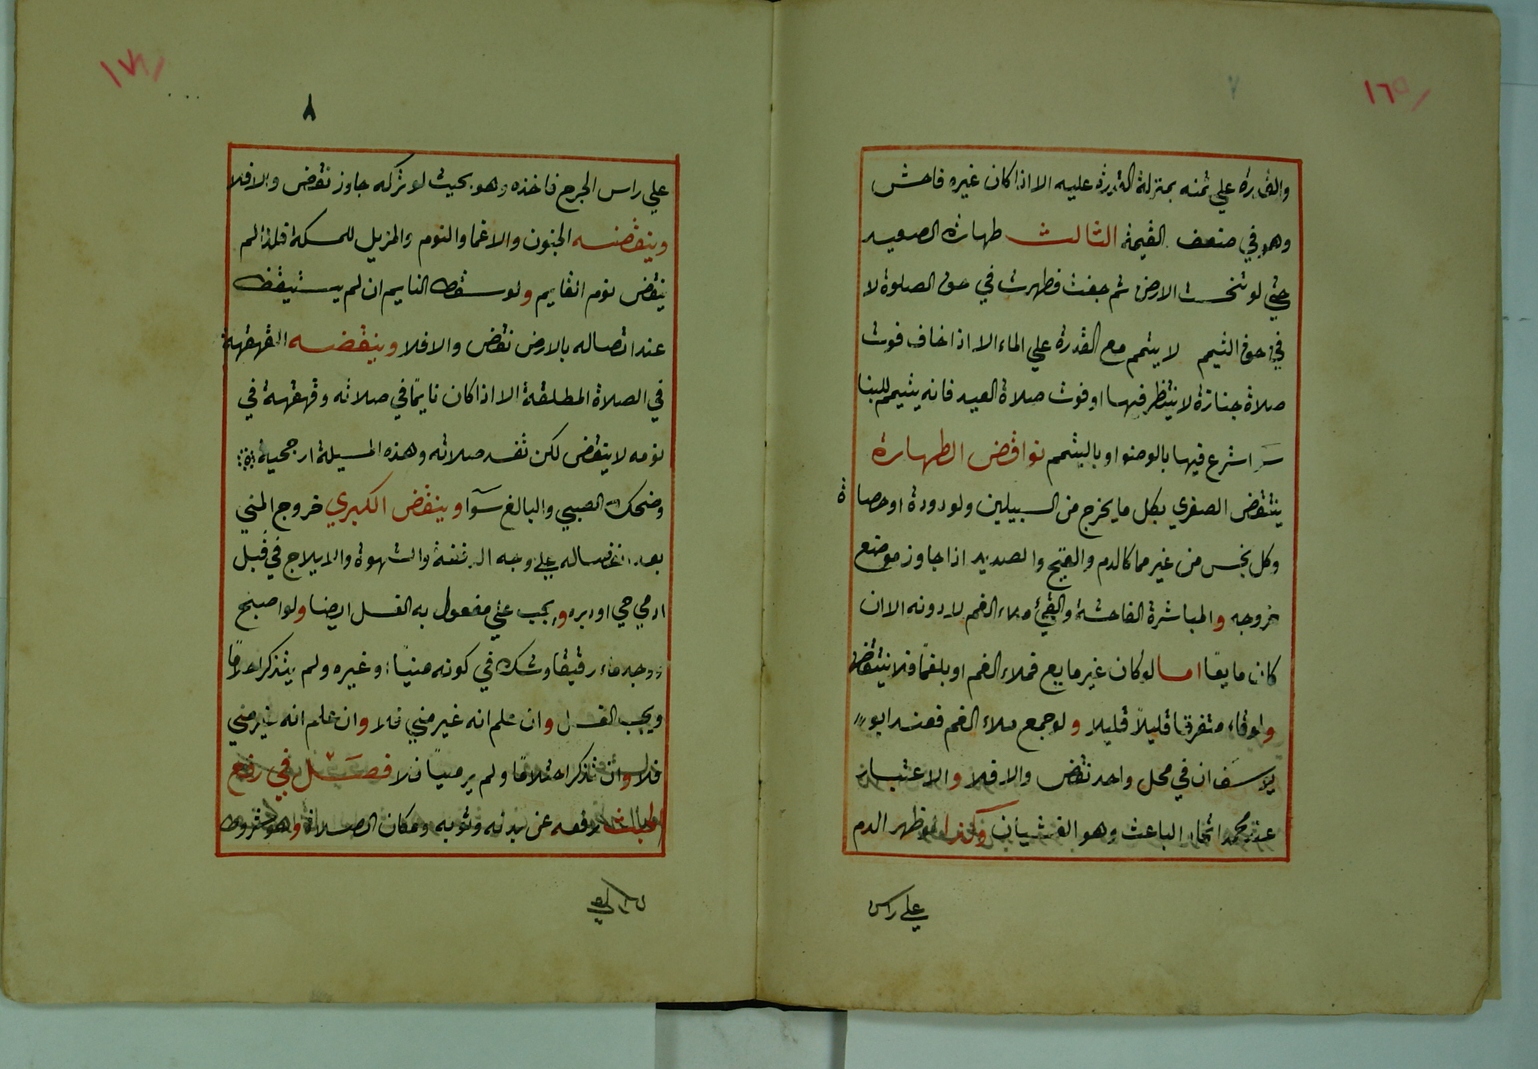 ١٦٩
٧
والقدرة علي ثمنه بمنزلة القدرة عليه الا اذا كان غيره فاحش
وهو في ضعف القيمة الثالث طهارة الصعيد
حتي لو تنجست الارض ثم جفت فطهرت في حق الصلوة لا
في حق التيمم لا يتمم مع القدرة علي الماء الا اذا خاف فوت
صلاة جنازة لا ينتظر فيها او فوت صلاة العيد فانه يتيمم للبنا
سرا شرع فيها بالوضوء او بالتيمم نواقض الطهارة
ينتقض الصغري بكل ما يخرج من السبيلين ولو دودة او حصاة
وكل نجس من غيرهما كالدم والقيح والصديد اذا جاوز موضع
خروجه والمباشرة الفاحشة والقيء ملاء الفم لا دونه الا ان
كان مايعا اما لو كان غير مايع فملاء الفم او بلغما فلا ينتقض
ولو قاء متفرقا قليلا قليلا ولو جمع ملاء الفم فعند ابو
يوسف ان في محل واحد نقض والا فلا والاعتبار
عند محمد اتحاد الباعث وهو الغثيان وكذا لو ظهر الدم
علي راس
١٧١
٨
علي راس الجرح فاخذه وهو بحيث لو تركه جاوز نقض والا فلا
وينقضه الجنون والاغما والنوم والمزيل للمسكة فلذا لم
ينقض نوم القايم ولو سقط النايم ان لم يستيقظ
عند اتصاله بالارض نقض والا فلا وينقضه القهقهة
في الصلاة المطلقة الا اذا كان نايما في صلاته وقهقهة في
نومه لا ينقض لكن تفسد صلاته وهذه المسيلة ارجحية
وضحك الصبي والبالغ سوآ وينقض الكبري خروج المني
بعد انفصاله علي وجه الدفقة والشهوة والايلاج في قبل
ادمي حي او دبره ويجب علي مفعول به الغسل ايضا ولو اصبح
ووجد ماء رقيقا وشك في كونه منيا وغيره ولم يتذكر احتلاما
ويجب الغسل وان علم انه غير مني فلا وان علم انه غير مني
فلا وان تذكر احتلاما ولم ير منيا فلا فصل في رفع
الخباثة رفعه عن بدنه وثوبه ومكان الصلاة وهو شروط